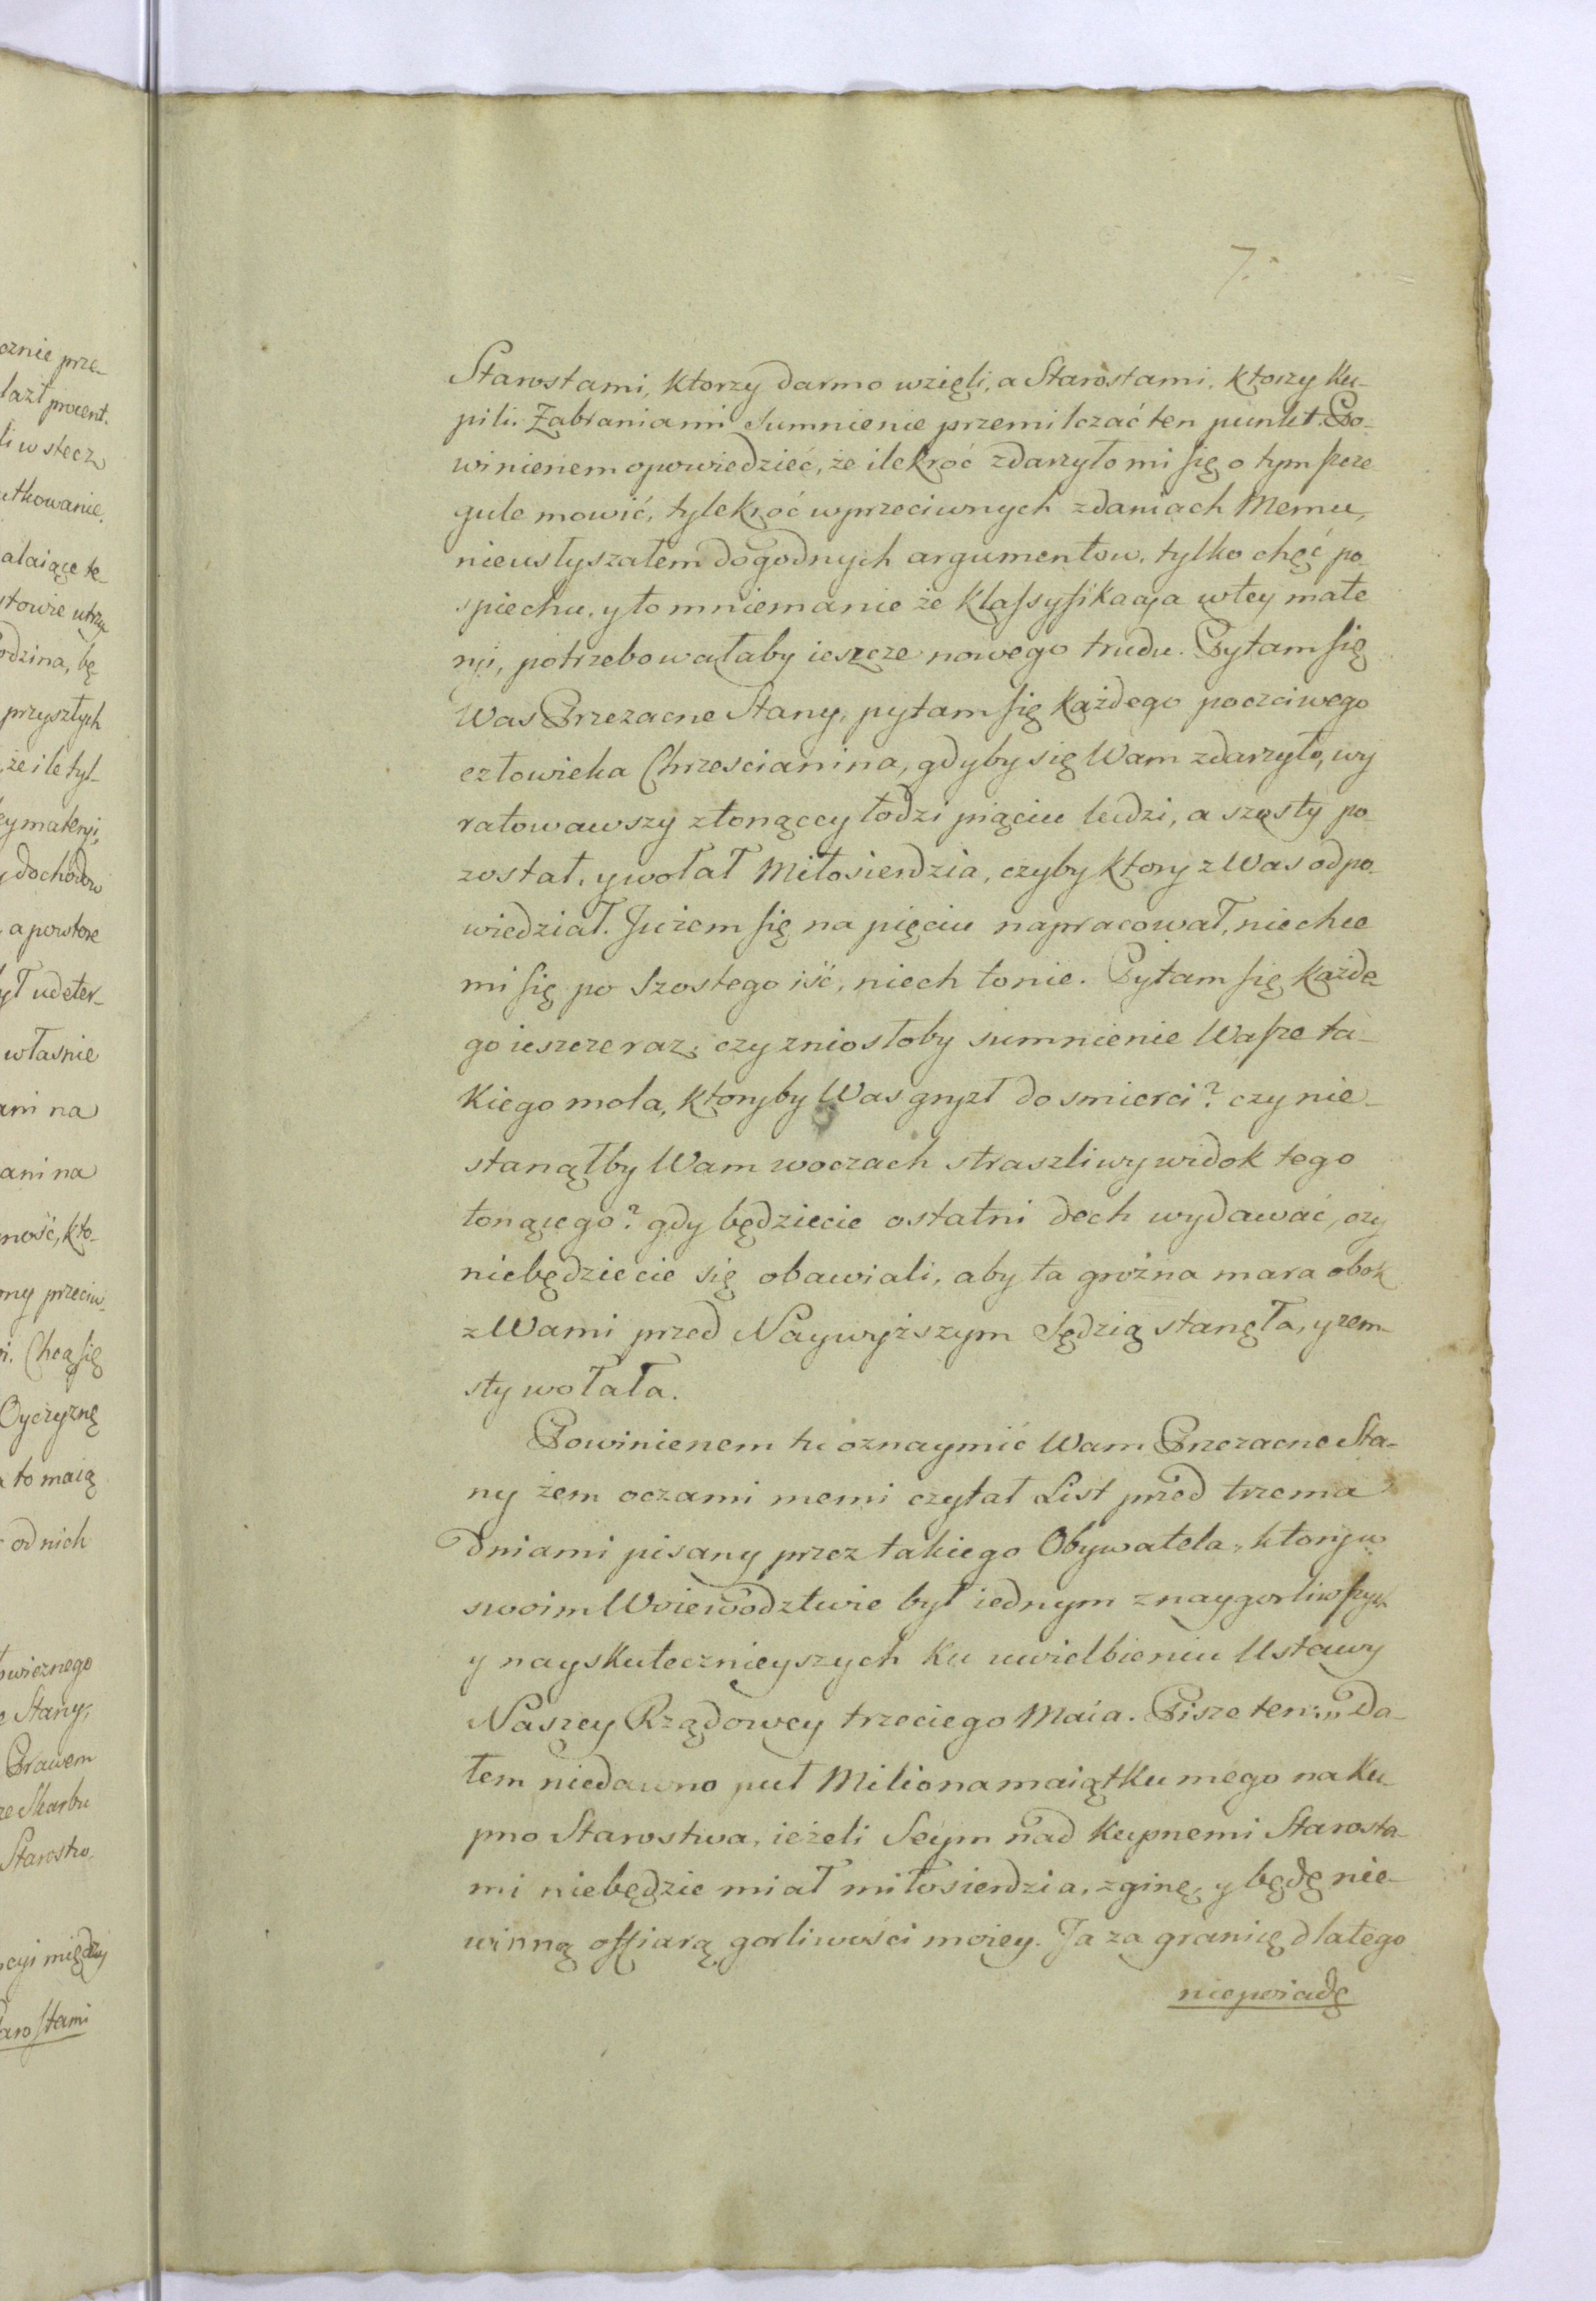 7.
Starostami, ktorzy darmo wzięli, a Starostami, ktorzy ku-
pili. Zabraniami Sumnienie przemilczać ten punkt. Po-
winienem opowiedzieć, że ilekroć zdarzyło mi się o tym szcze
gule mowić, tylekroć wprzeciwnych zdaniach Memu,
nieusłyszałem dogodnych argumentow, tylko chęć po-
spiechu, y to mniemanie że klassyfikacyja wtey mate
ryi, potrzebowałaby ieszcze nowego trudu. Pytam się
Was Przezacne Stany, pytam się każdego poczciwego
człowieka Chrzescianina, gdyby się Wam zdarzyło, wy
ratowawszy ztonącey łodzi pięciu ludzi, a szosty po-
został, y wołał Miłosierdzia, czyby ktory z Was odpo-
wiedział. Jużem się na pięciu napracował, niechce
mi się po Szostego iść, niech tonie. Pytam się każde-
go ieszcze raz; czy zniosłoby sumnienie Wasze ta-
kiego mola, ktoryby Was gryzł do smierci? czy nie-
stanąłby Wam woczach straszliwy widok tego
tonącego? gdy będziecie ostatni dech wydawać, czy
niebędziecie się obawiali, aby ta groźna mara obok
z Wami przed Naywyższym Sędzią stanęła, y zem-
sty wołała.
Powinienem tu oznaymić Wam Przezacne Sta-
ny żem oczami memi czytał List przed trzema
dniami pisany przez takiego Obywatela, ktory w
swoim Woiewodztwie był iednym z naygorliwszych
y nayskutecznieyszych ku uwielbieniu Ustawy
Naszey Rządowey trzeciego Maia. Pisze ten: „Da-
łem niedawno puł Miliona maiątku mego na ku-
pno Starostwa, ieżeli Seym nad kupnemi Starosta-
mi niebędzie miał miłosierdzia, zginę, y będę nie-
winną offiarą gorliwości moiey. Ja za granicę dlatego
niepoiadę
oznie prze-
lazł procent.
li wstecz
utkowanie,
alaiące te-
stowie utrzy
odzina, bę
przyszłych
, że ile tyl-
ey materyi,
y dochodow
, a powtore
ył udeter-
własnie
ami na
ani na
ność, kto-
ony przeciw-
i. Chcą się
Oyczyznę
a to maią
od nich
owiecznego
e Stany,
Prawem
ze Skarbu
Starostw
acyi między
Starostami